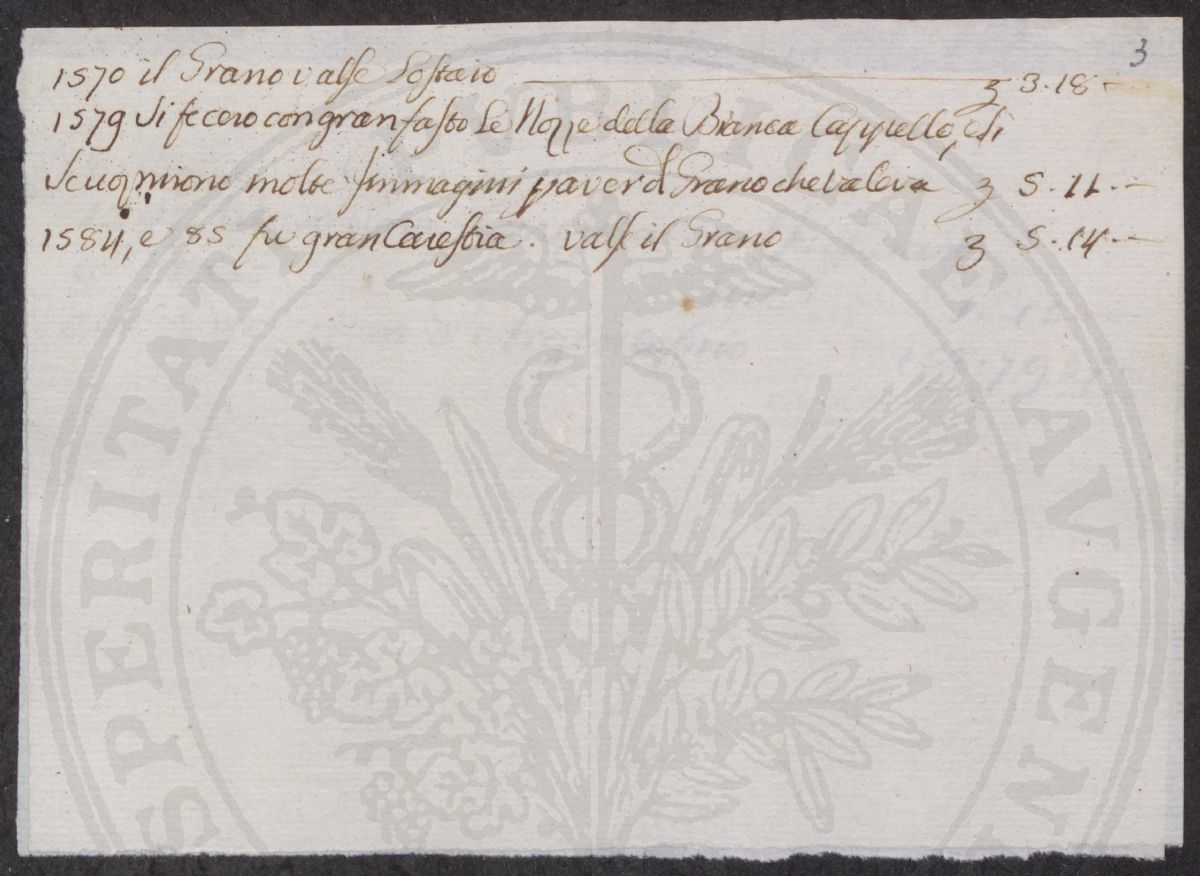 3
1570 il Grano valse Lostaio ₤ 3.18.—
1579 si fecero con gran fasto Le Nozze della Bianca Cappello, e si
Scuoprirono molte Immagini p aver d Grano che valeva ₤ 5.11.—
1584, e 85 fu gran Carestia. valse il Grano ₤ 5.14.—
SPERITATI PVBLICAE AVGEN